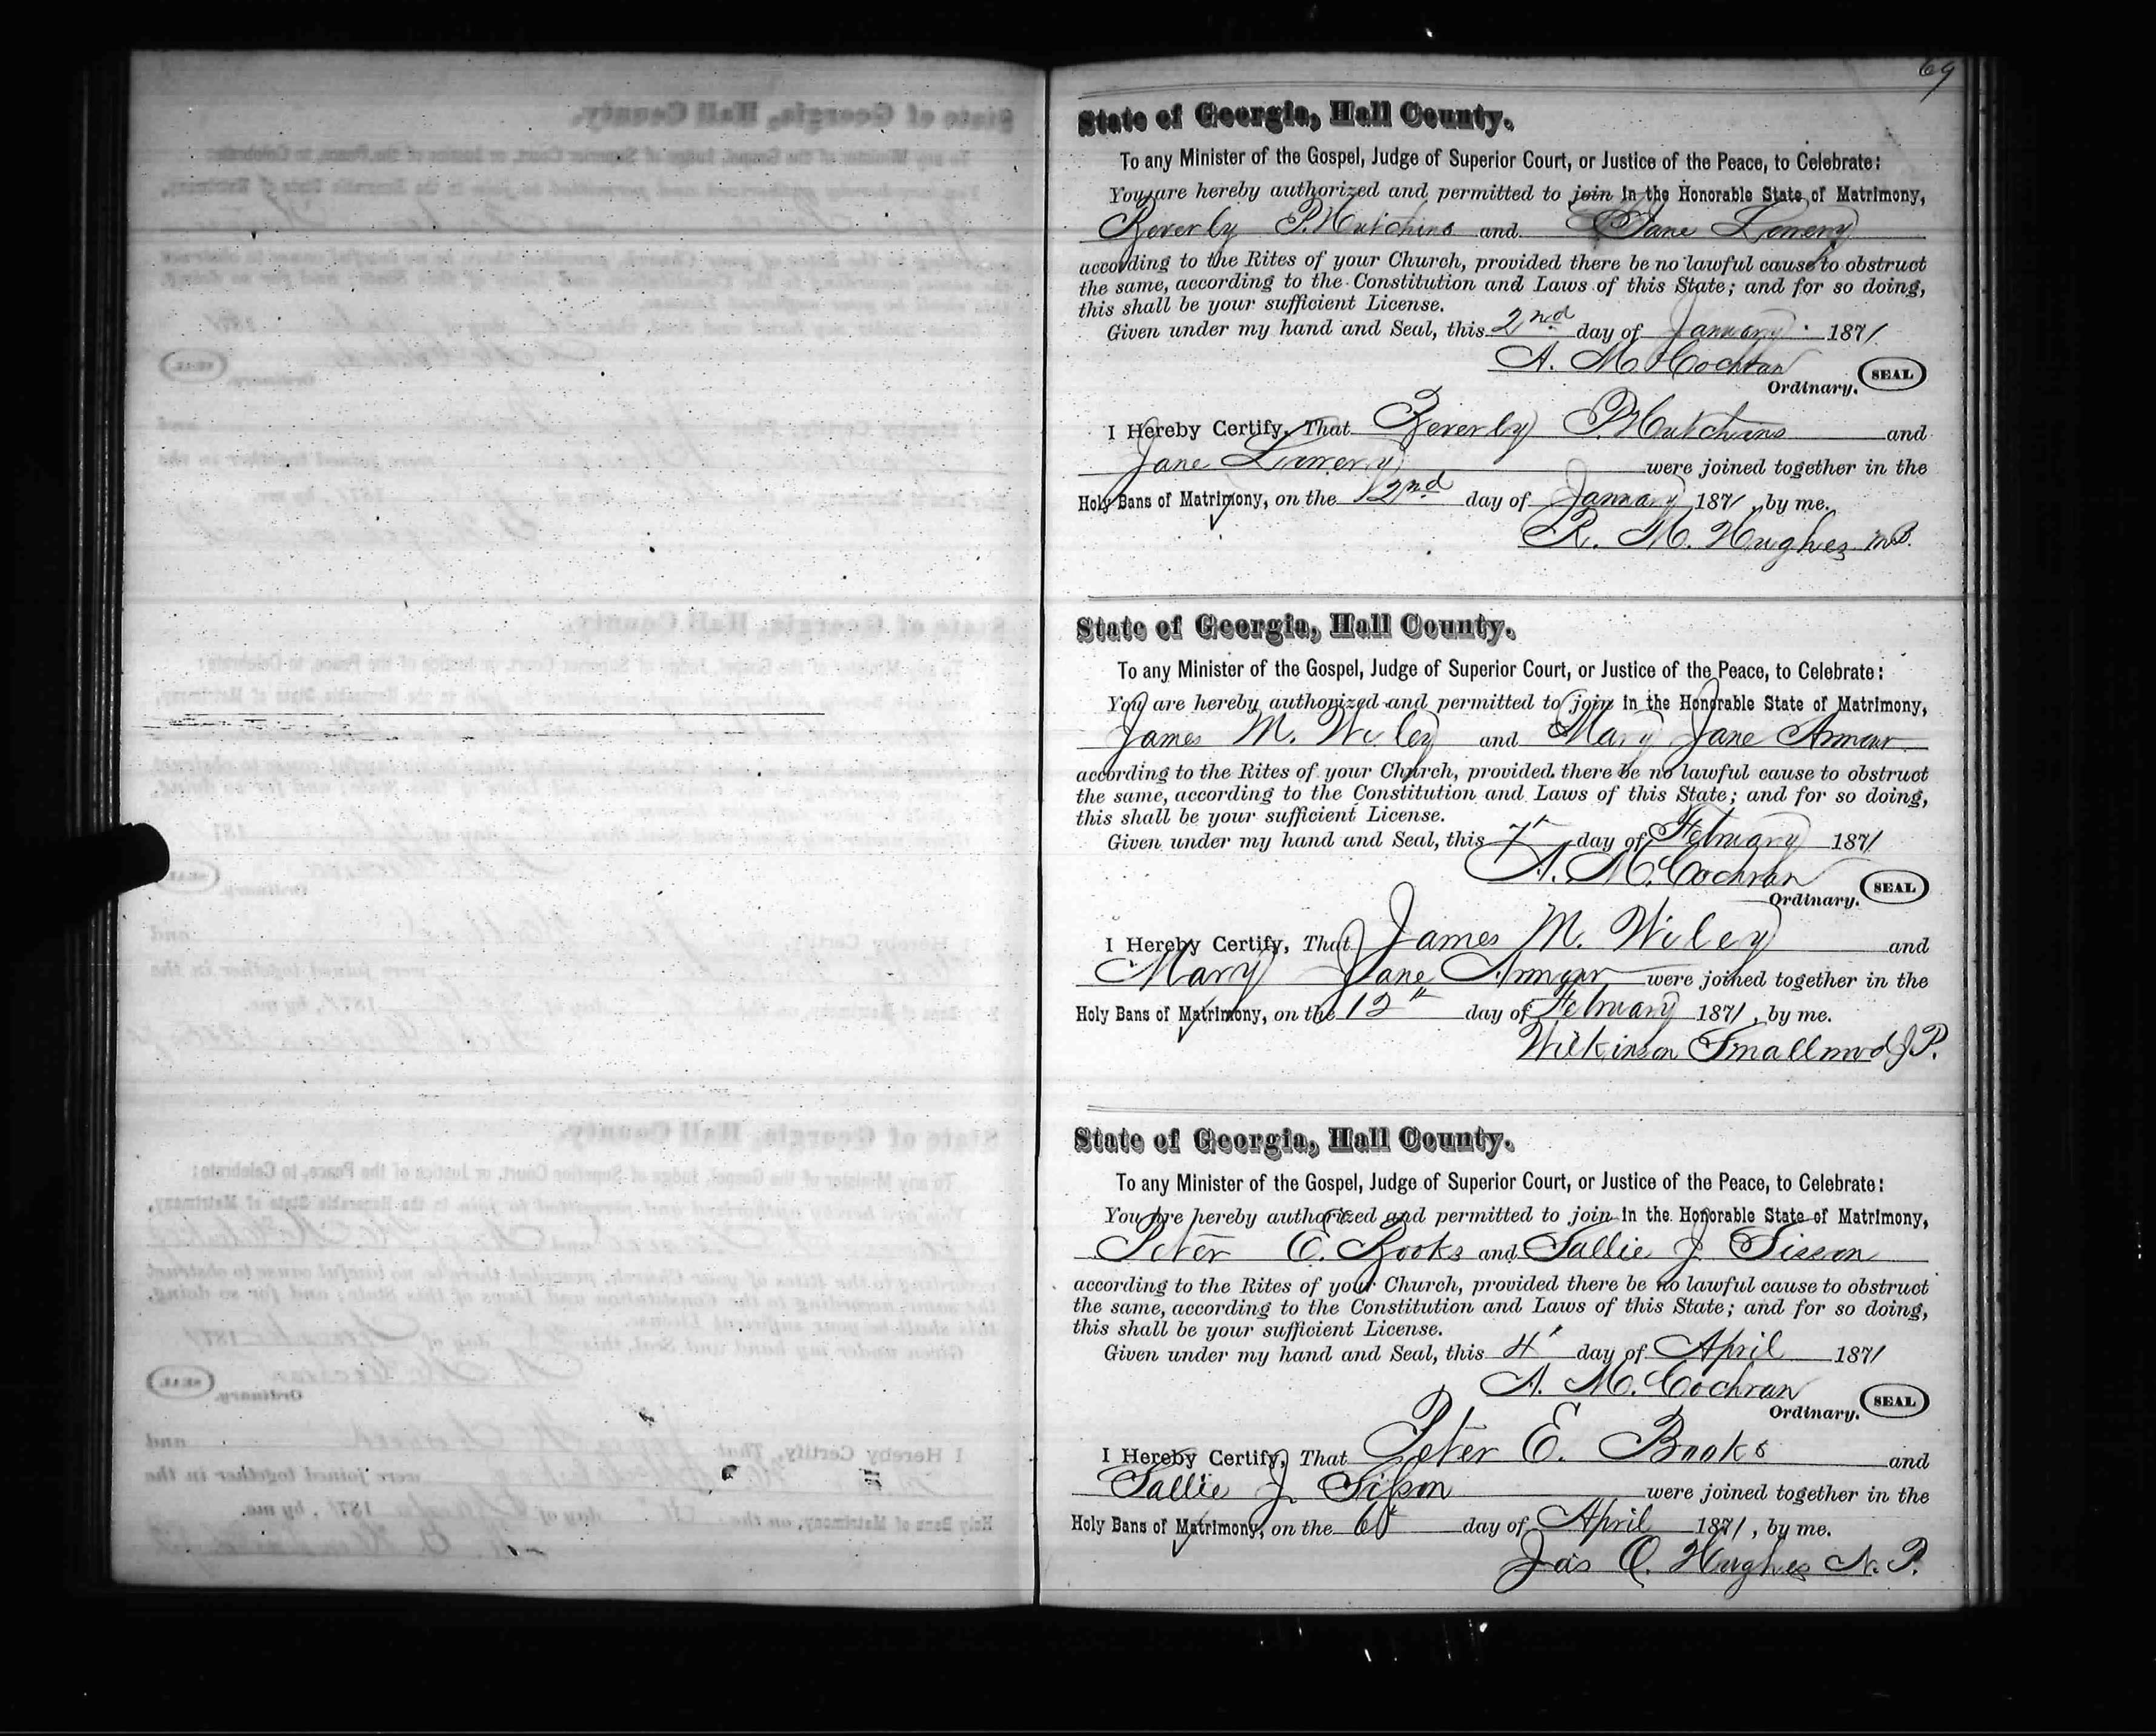 69
State of Georgia, Hall County.
To any Minister of the Gospel, Judge of Superior Court, or Justice of the Peace, to Celebrate:
You are hereby authorized and permitted to join in the Honorable State of Matrimony,
Beverly P. Hutchins and Jane
according to the Rites of your Church, provided there be no lawful cause to obstruct
the same, according to the Constitution and Laws of this State; and for so doing,
this shall be your sufficient License.
Given under my hand and Seal, this 2nd day of January 1871
A. M. Cochran
Ordinary. SEAL
I Hereby Certify, That Beverly P. Hutchins and
Jane were joined together in the
Holy Bans of Matrimony, on the 2nd day of January 1871, by me.
R. M. Hughes
State of Georgia, Hall County.
To any Minister of the Gospel, Judge of Superior Court, or Justice of the Peace, to Celebrate:
You are hereby authorized and permitted to join in the Honorable State of Matrimony,
James M. Wiley and Mary Jane Armour
according to the Rites of your Church, provided there be no lawful cause to obstruct
the same, according to the Constitution and Laws of this State; and for so doing,
this shall be your sufficient License.
Given under my hand and Seal, this 7' day of February 1871
A. M. Cochran
Ordinary. SEAL
I Hereby Certify, That James M. Wiley and
Mary Jane Armour were joined together in the
Holy Bans of Matrimony, on the 12th day of February 1871, by me.
Wilkinson Smallwood J.P.
State of Georgia, Hall County.
To any Minister of the Gospel, Judge of Superior Court, or Justice of the Peace, to Celebrate:
You are hereby authorized and permitted to join in the Honorable State of Matrimony,
Peter E. Books and Sallie J. Sisson
according to the Rites of your Church, provided there be no lawful cause to obstruct
the same, according to the Constitution and Laws of this State; and for so doing,
this shall be your sufficient License.
Given under my hand and Seal, this 4' day of April 1871
A. M. Cochran
Ordinary. SEAL
I Hereby Certify, That Peter E. Books and
Sallie J. Sisson were joined together in the
Holy Bans of Matrimony, on the 6t day of April 1871, by me.
Jas O. Hughes N. P.